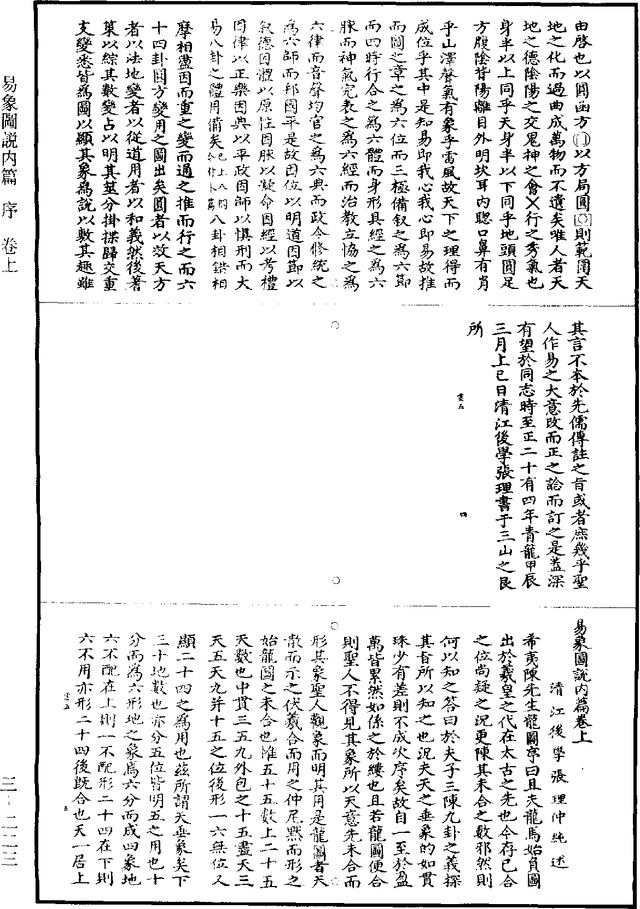 易象圖說內篇 序 卷上
三—二二三
由啓也以圓函方以方局圓則範圍天
地之化而過曲成萬物而不遺矣唯人者天
地之德陰陽之交鬼神之會✕行之秀氣也
身半以上同乎天身半以下同乎地頭圓足
方腹陰背陽離目外明坎耳內聰口鼻有肖
乎山澤聲氣有象乎雷風故天下之理得而
成位乎其中是知易即我心我心即易故推
而圖之章之為六位而三極備敘之為六節
而四時行合之為六體而身形具經之為六
脉而神氣完表之為六經而治教立協之為
六律而音聲均官之為六典而政令脩統之
為六師而邦國平是故因位以明道因節以
敘德因體以原性因脉以凝命因經以考禮
因律以正樂因典以平政因師以愼刑而大
易八卦之體用備矣已上八圖今作外篇八卦相錯相
摩相盪因而重之變而通之推而行之而六
十四卦圓方變用之圖出矣圓者以效天方
者以法地變者以從道用者以和義然後著
䇿以綜其數變占以明其筮分掛揲歸交重
支變悉皆為圖以顯其象為說以敷其趣雖
其言不本於先儒傳註之旨或者庶幾乎聖
人作易之大意改而正之諗而訂之是蓋深
有望於同志時至正二十有四年青龍甲辰
三月上巳日清江後學張理書于三山之艮
所
四
易象圖說內篇卷上
清江後學張理仲純述
希夷陳先生龍圖序曰且夫龍馬始負圖
出於羲皇之代在太古之先也今存已合
之位尚疑之況更陳其未合之數邪然則
何以知之答曰於夫子三陳九卦之義探
其旨所以知之也況夫天之垂象的如貫
珠少有差則不成次序矣故自一至於盈
萬皆累然如係之於縷也且若龍圖便合
則聖人不得見其象所以天意先未合而
形其象聖人觀象而明其用是龍圖者天
散而示之伏羲合而用之仲尼默而形之
始龍圖之未合也惟五十五數上二十五
天數也中貫三五九外包之十五盡天三
天五天九并十五之位後形一六無位又
顯二十四之為用也茲所謂天垂象矣下
三十地數也亦分五位皆明五之用也十
分而為六形地之象焉六分而成四象地
六不配在上則一不配形二十四在下則
六不用亦形二十四後既合也天一居上